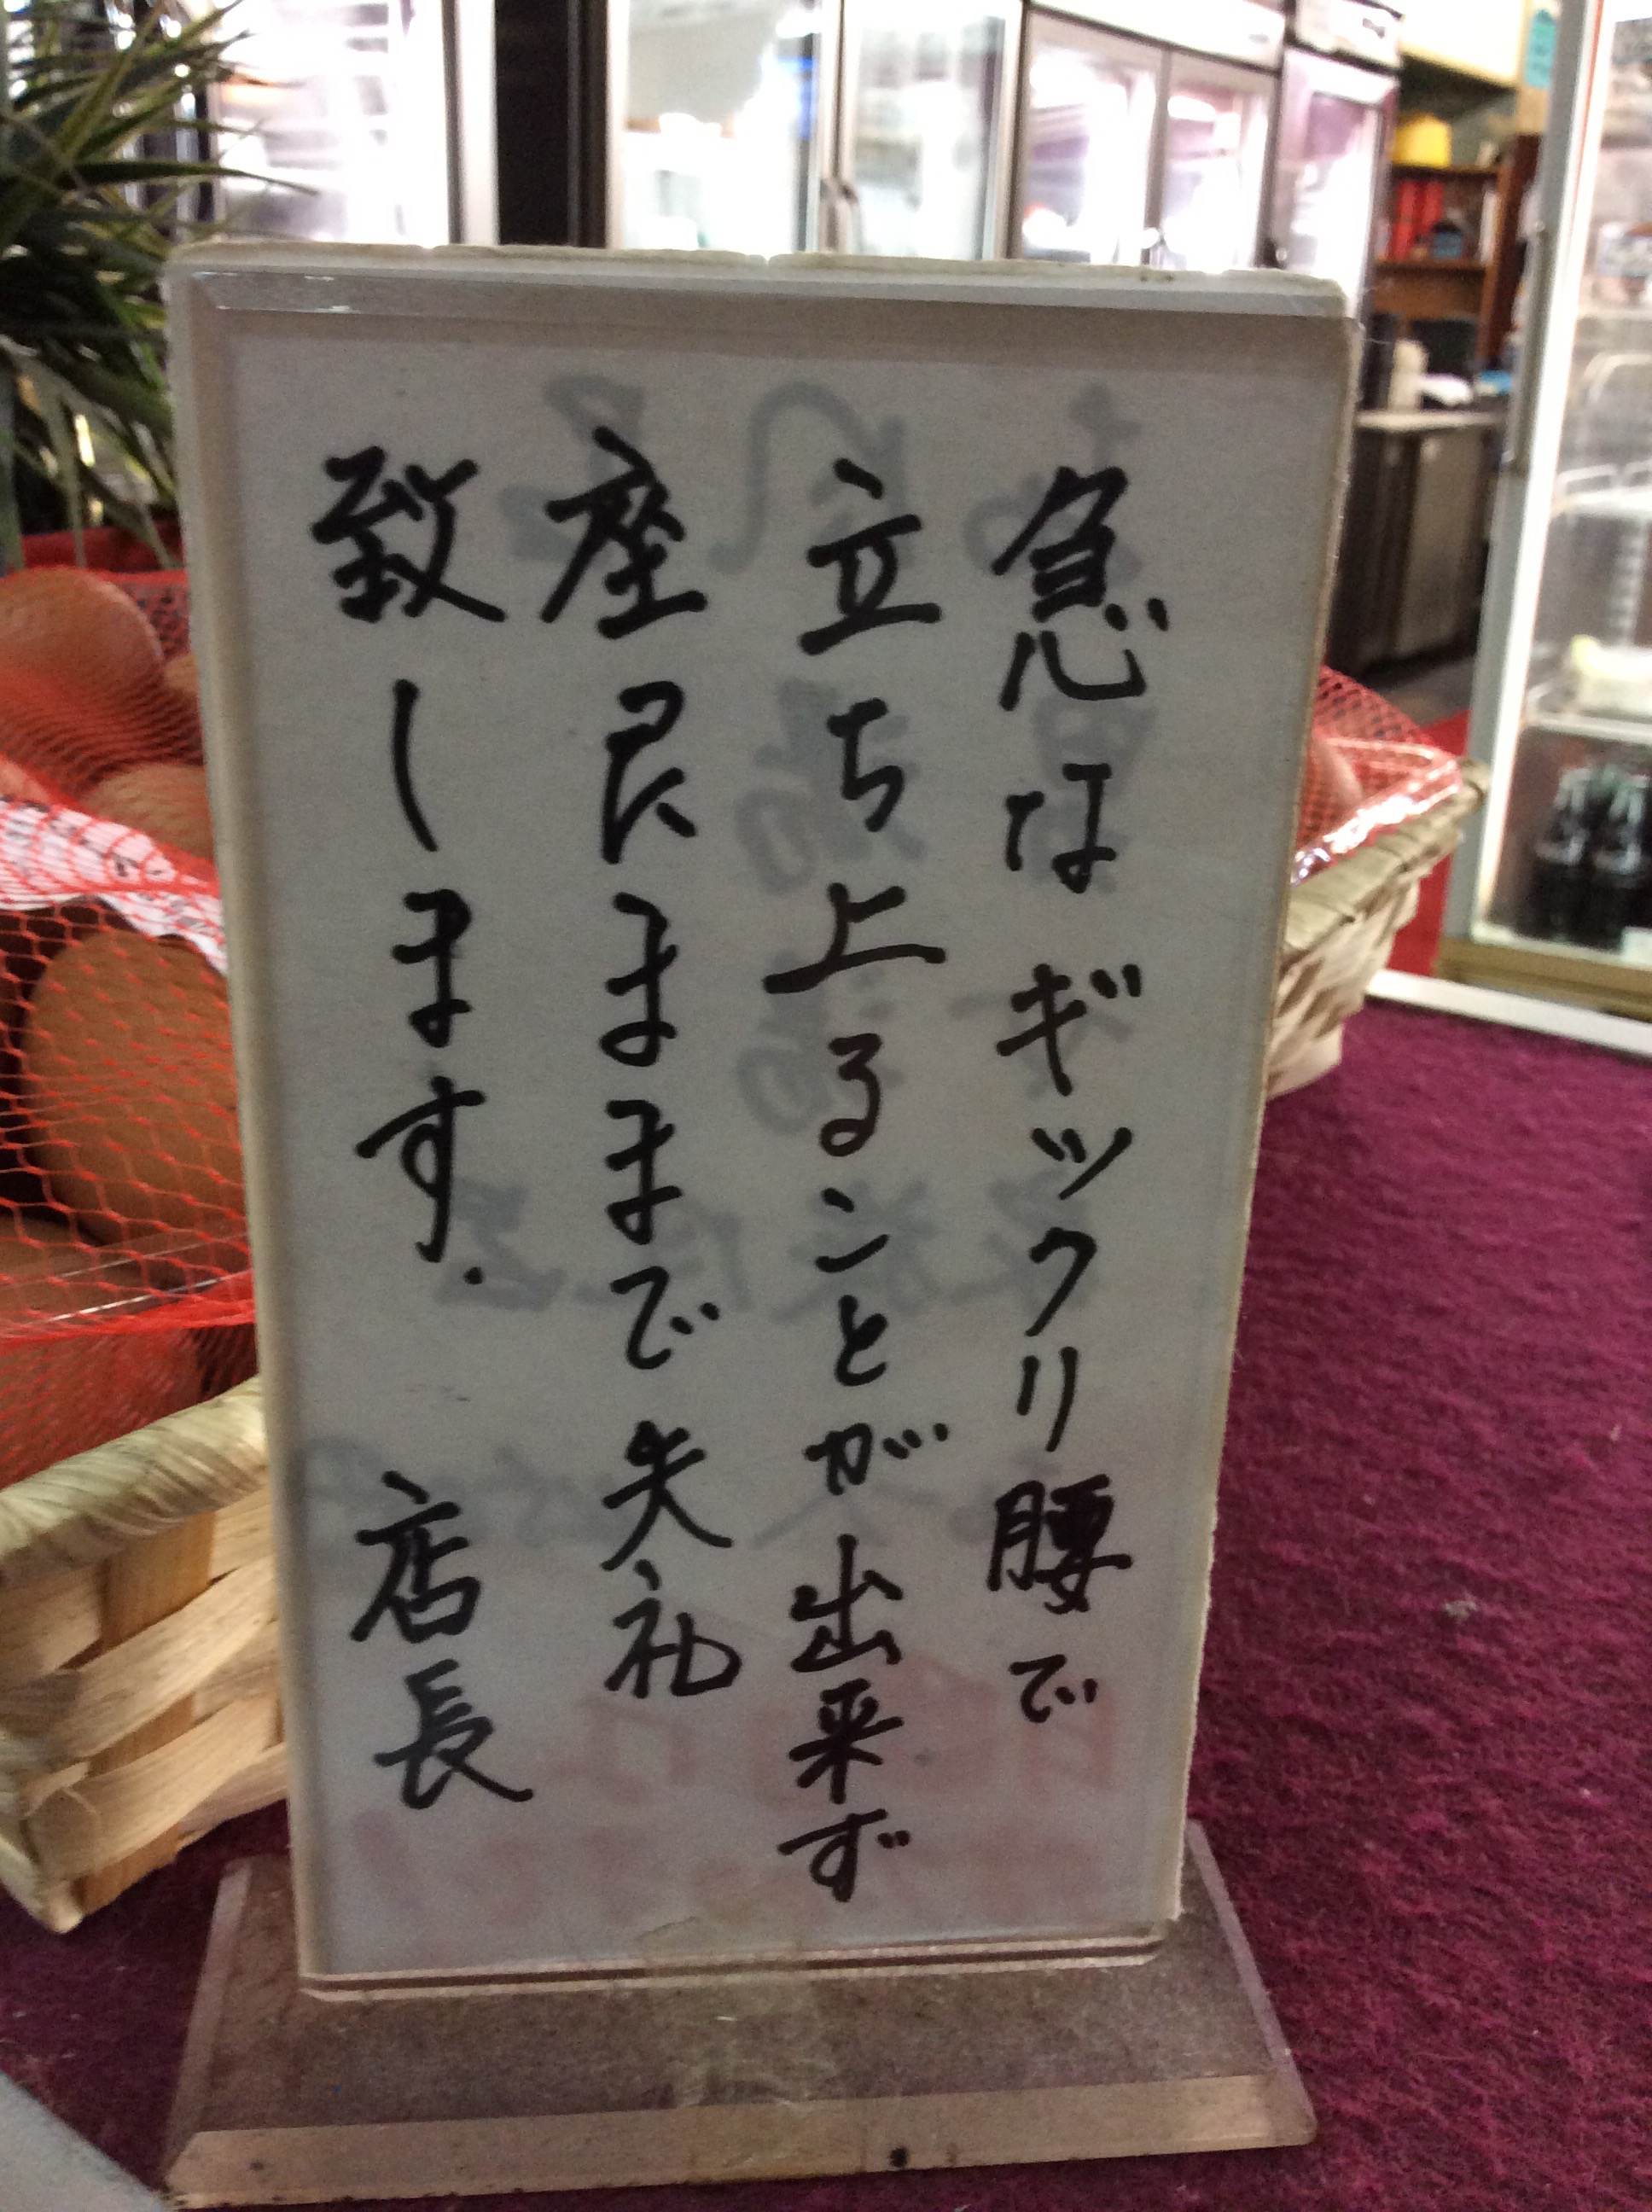 急なギックリ腰で
立ち上ることが出来ず
座艮ままで失礼
致します.　店長